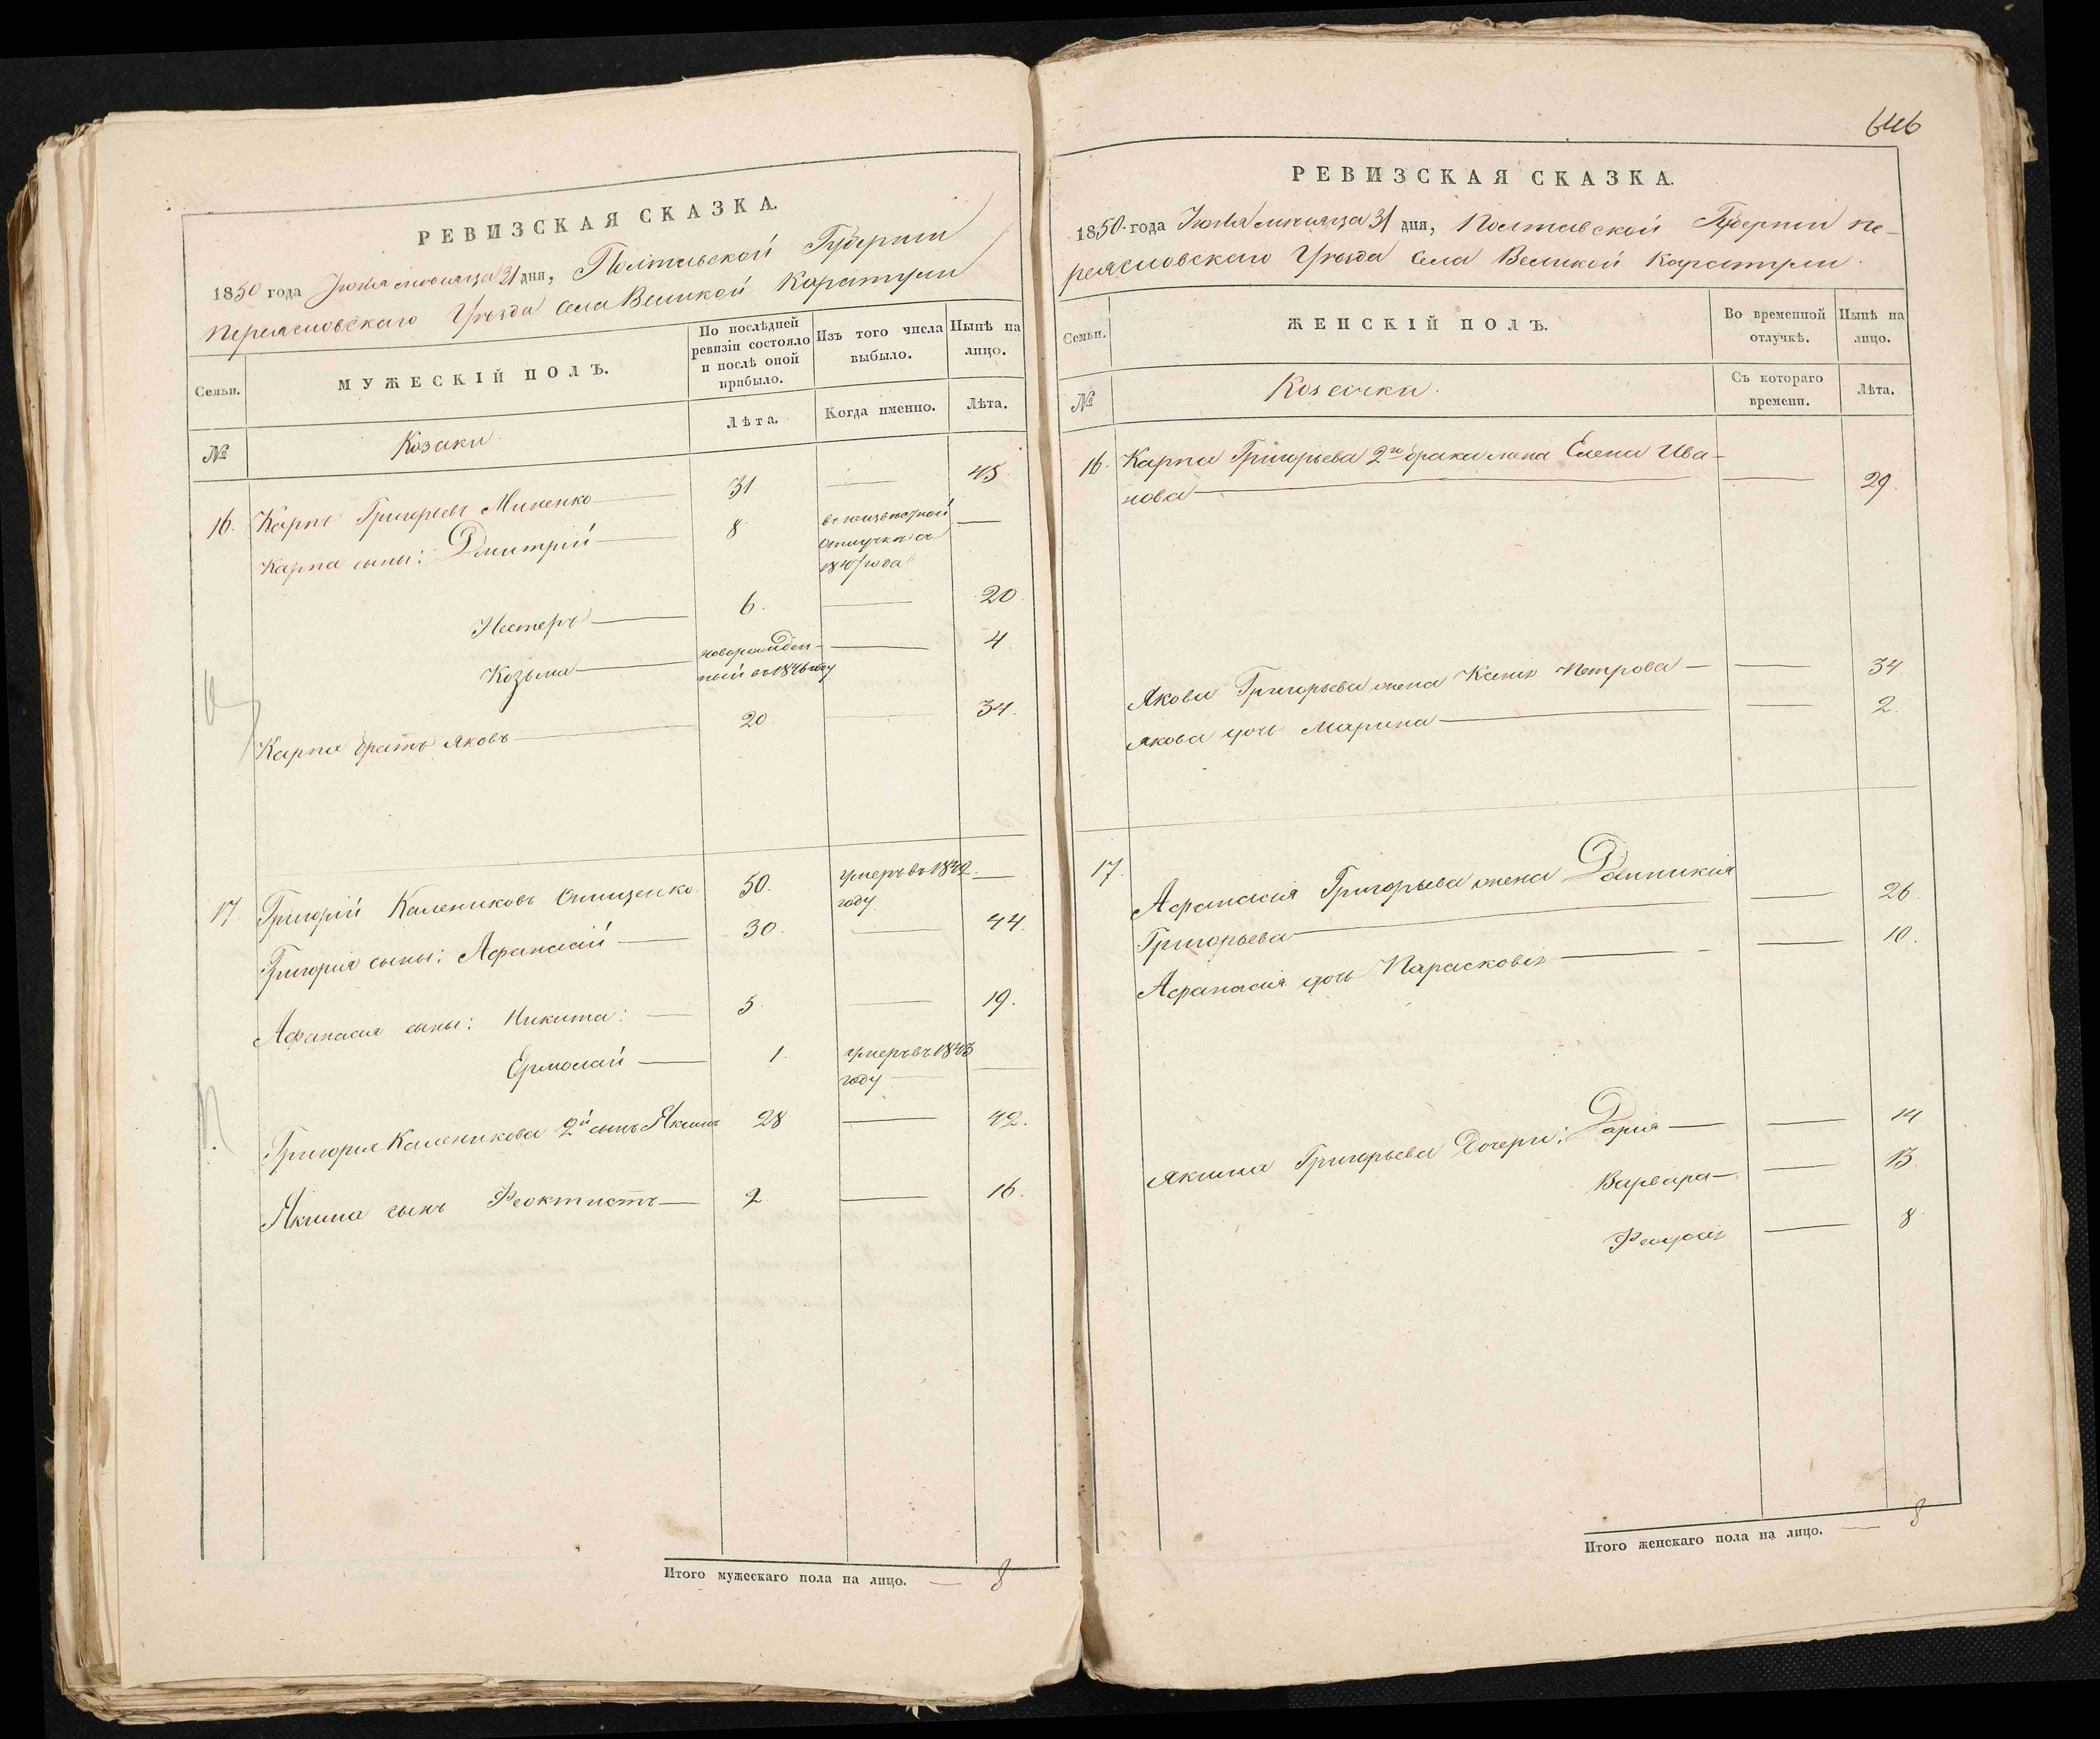 РЕВИЗСКАЯ СКАЗКА.
1850 года Іюля мѣсяца 31 дня, Полтавской Губерніи
Переяславскаго Уѣзда Села Великой Каратули
Семьи.
МУЖЕСКІЙ ПОЛЪ.
По послѣдней ревизіи состояло и послѣ оной прибыло.
Изъ того числа выбыло.
Нынѣ на лицо.
№
Козаки
Лѣта.
Когда именно.
Лѣта.
16. Карпъ Григорьевъ Миненко — 31 — 45
Карпа сыны: Дмитрій — 8 въ неизвѣстной —
отлучкѣ съ
года
Нестеръ — 6. — 20
Козьма — новорожден- — 4
ный въ 1846 году
Карпа братъ Яковъ — 20 — 34.
17. Григорій Калениковъ Онищенко 50. умеръ въ 1842 —
году
Григорія сыны: Афанасій — 30. — 44.
Афанасія сыны: Никита: — 5. — 19.
Ермолай — 1. умеръ въ 1843 —
году
Григорія Каленикова 2й сынъ Якимъ 28 — 42.
Якима сынъ Феоктистъ — 2 — 16.
Итого мужескаго пола на лицо. — 8
646
РЕВИЗСКАЯ СКАЗКА.
1850 года Іюля мѣсяца 31 дня, Полтавской Губерніи Пе-
реяславскаго Уѣзда Села Великой Каратули.
Семьи.
ЖЕНСКІЙ ПОЛЪ.
Во временной отлучкѣ.
Нынѣ на лицо.
№
Козачки.
Съ котораго времени.
Лѣта.
16. Карпа Григорьева 2го брака жена Елена Ива-
нова — — 29.
Якова Григорьева жена Ксенія Петрова — — 34
Якова дочь Марина — — 2.
17.
Афанасія Григорьева жена Домникія
Григорьева — — 26.
Афанасія дочь Парасковія — — 10.
Якима Григорьева Дочери: Дарія — — 14
Варвара — — 13
Феодосія — 8
Итого женскаго пола на лицо. — 8